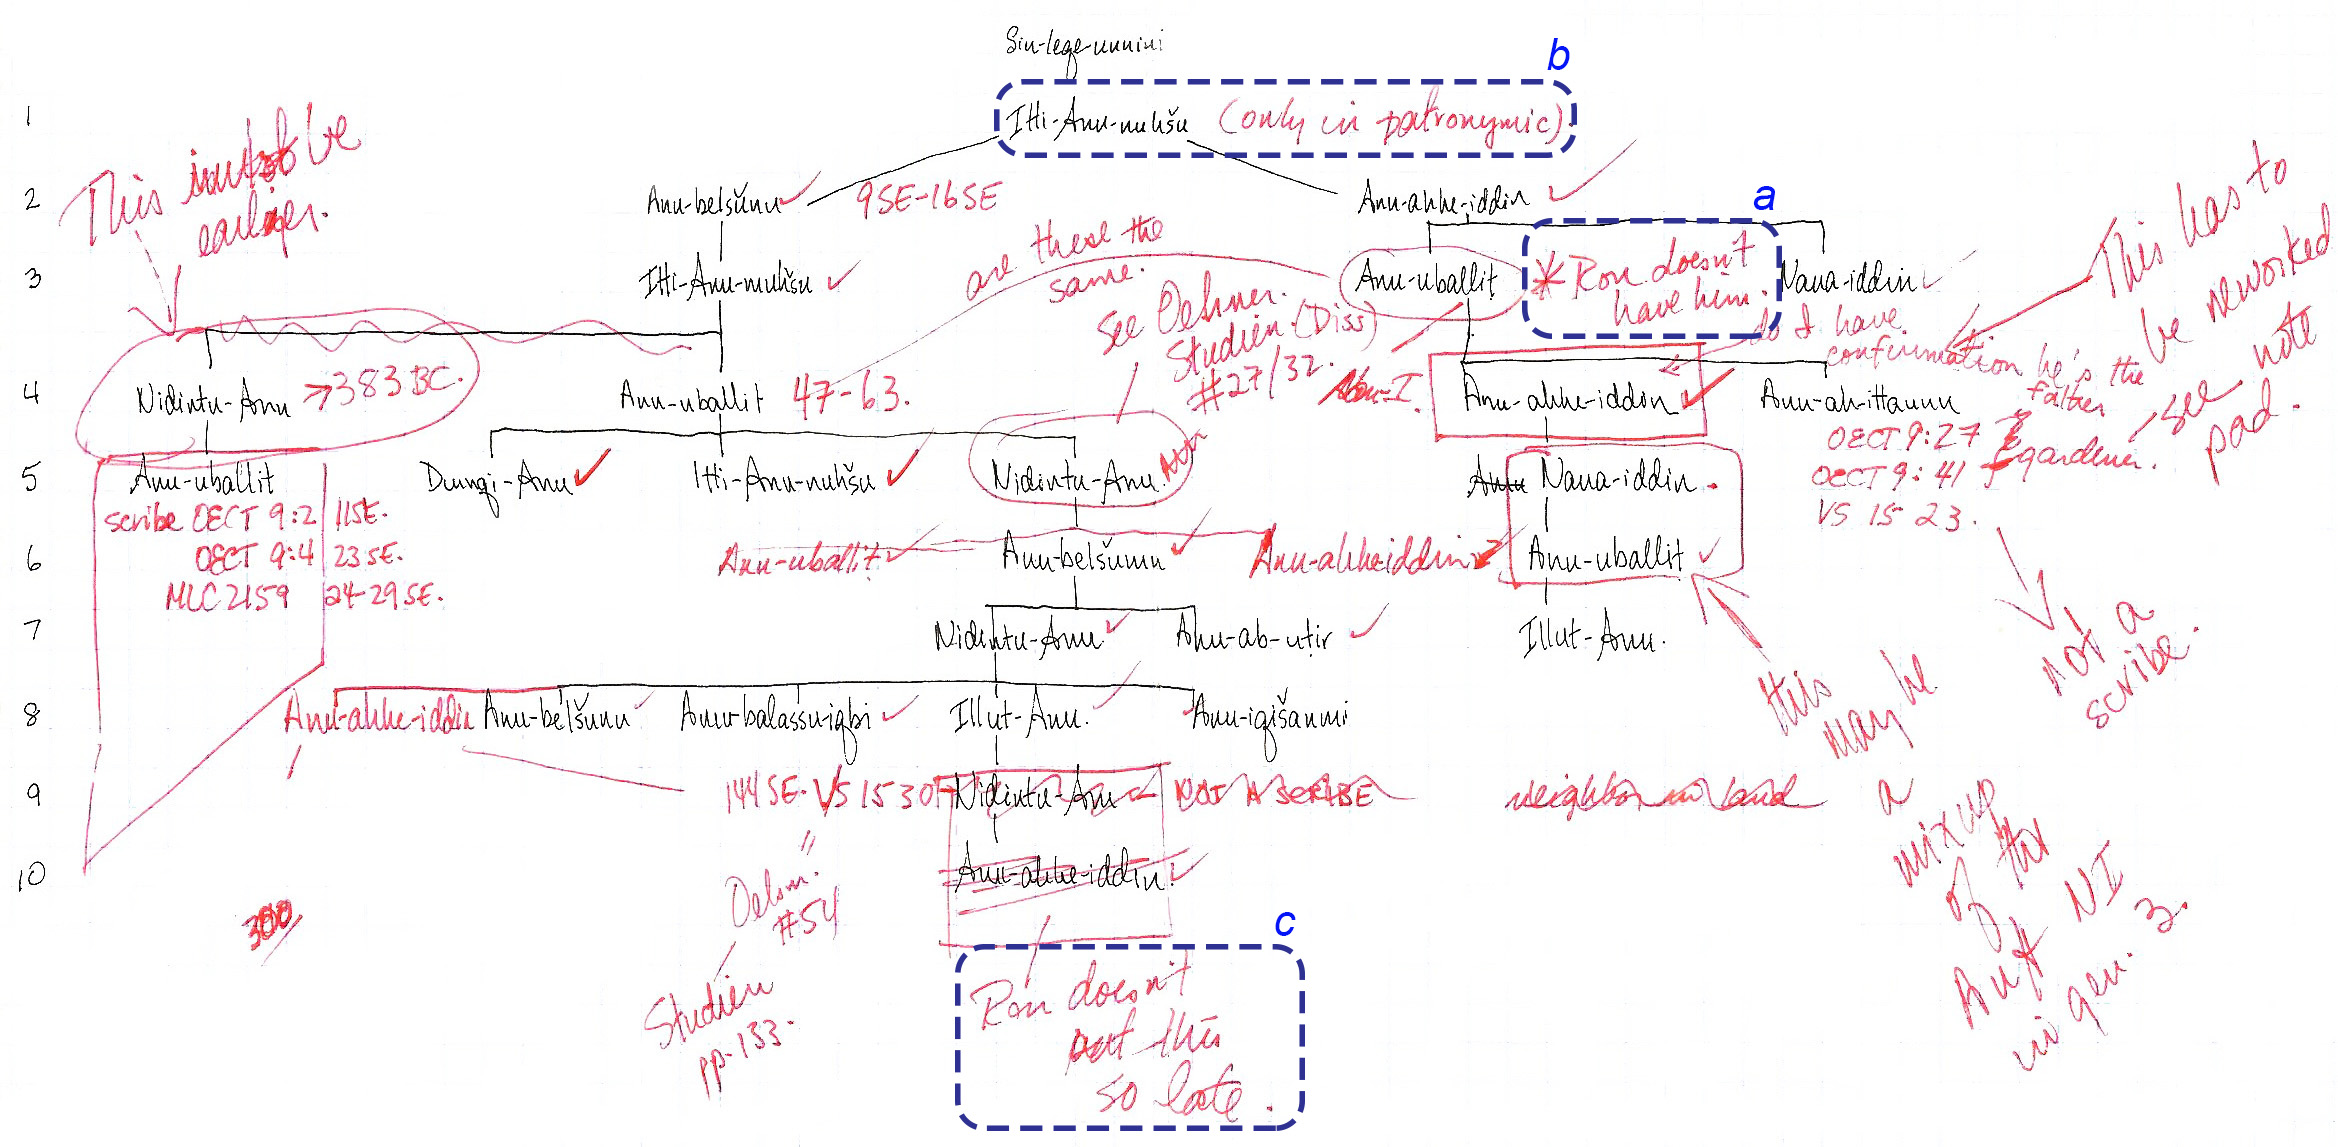 Sin-leqe-unnini
b
1
Itti-Anu-nuhšu (only in patronymic).
This must be
earlier.
2
Anu-belšunu 9SE-16SE
Anu-ahhe-iddin
a
are these the
same.
3
Itti-Anu-nuhšu
Anu-uballit
* Ron doesn't
have him.
Nana-iddin
This has to
be reworked
see note
pad.
See Oelsner.
Studien (Diss)
#27/32.
do I have
confirmation he's the
father
4
Nidintu-Anu → 383 BC.
Anu-uballit 47-63.
Anu-ahhe-iddin
Anu-ah-ittannu
OECT 9:27
OECT 9:41
gardener.
VS 15 23.
see note
5
Anu-uballit
Dumqi-Anu
Itti-Anu-nuhšu
Nidintu-Anu.
Anu Nana-iddin.
scribe OECT 9:2 11SE.
OECT 9:4 23SE.
MLC 2159 24-29SE.
6
Anu-uballit
Anu-belšunu
Anu-ahheiddin
Anu-uballit
7
Nidintu-Anu
Anu-ab-uṭir
Illut-Anu.
not a
scribe.
8
Anu-ahhe-iddin
Anu-belšunu
Anu-balassu-iqbi
Illut-Anu.
Anu-iqišanni
this
may be
a
mixup
of the
Au ✗ NI
in gen. 3.
9
144 SE. VS 15 30
Nidintu-Anu
NOT A SCRIBE
neighbor in land
10
Anu-ahhe-iddin.
300
Oelsn.
#54
Studien
pp. 133.
c
Ron doesn't
put this
so late.